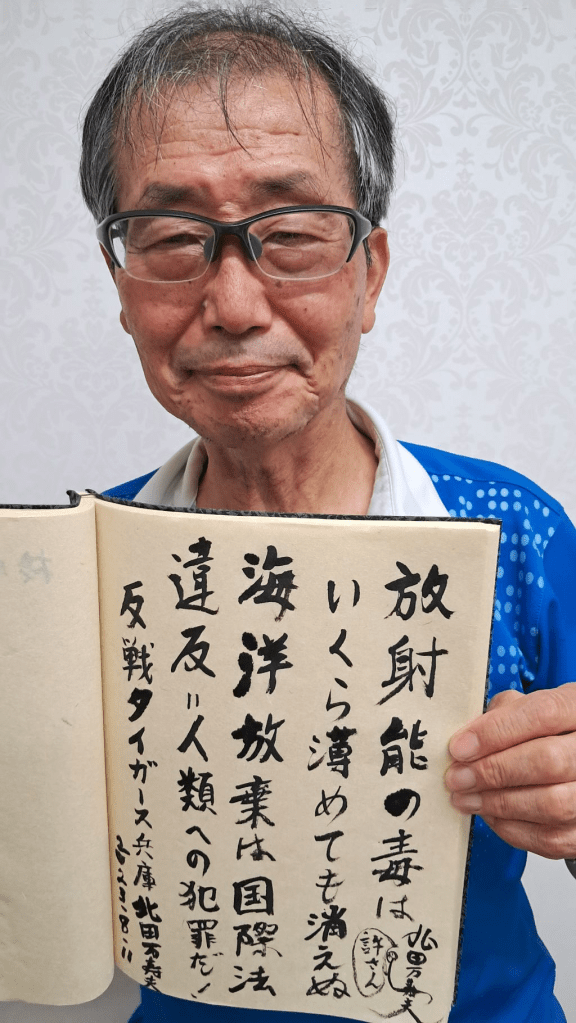 放射能の毒は
いくら薄めても消えぬ
海洋放棄は国際法
違反＝人類への犯罪だ！
反戦タイガース兵庫 北田万寿夫
2023.8.11
許さん